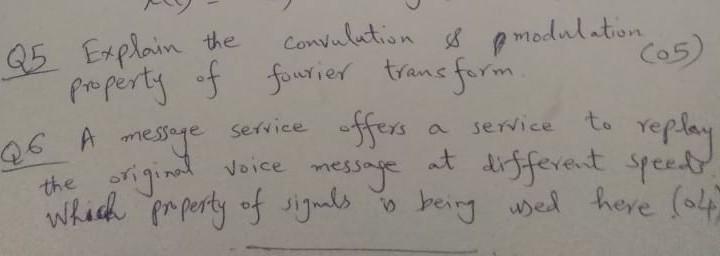 Q5 Explain the convulution & modulation (05)
property of fourier transform.
Q6 A message service offers a service to replay
the original voice message at different speeds.
Which property of signals is being used here (04)